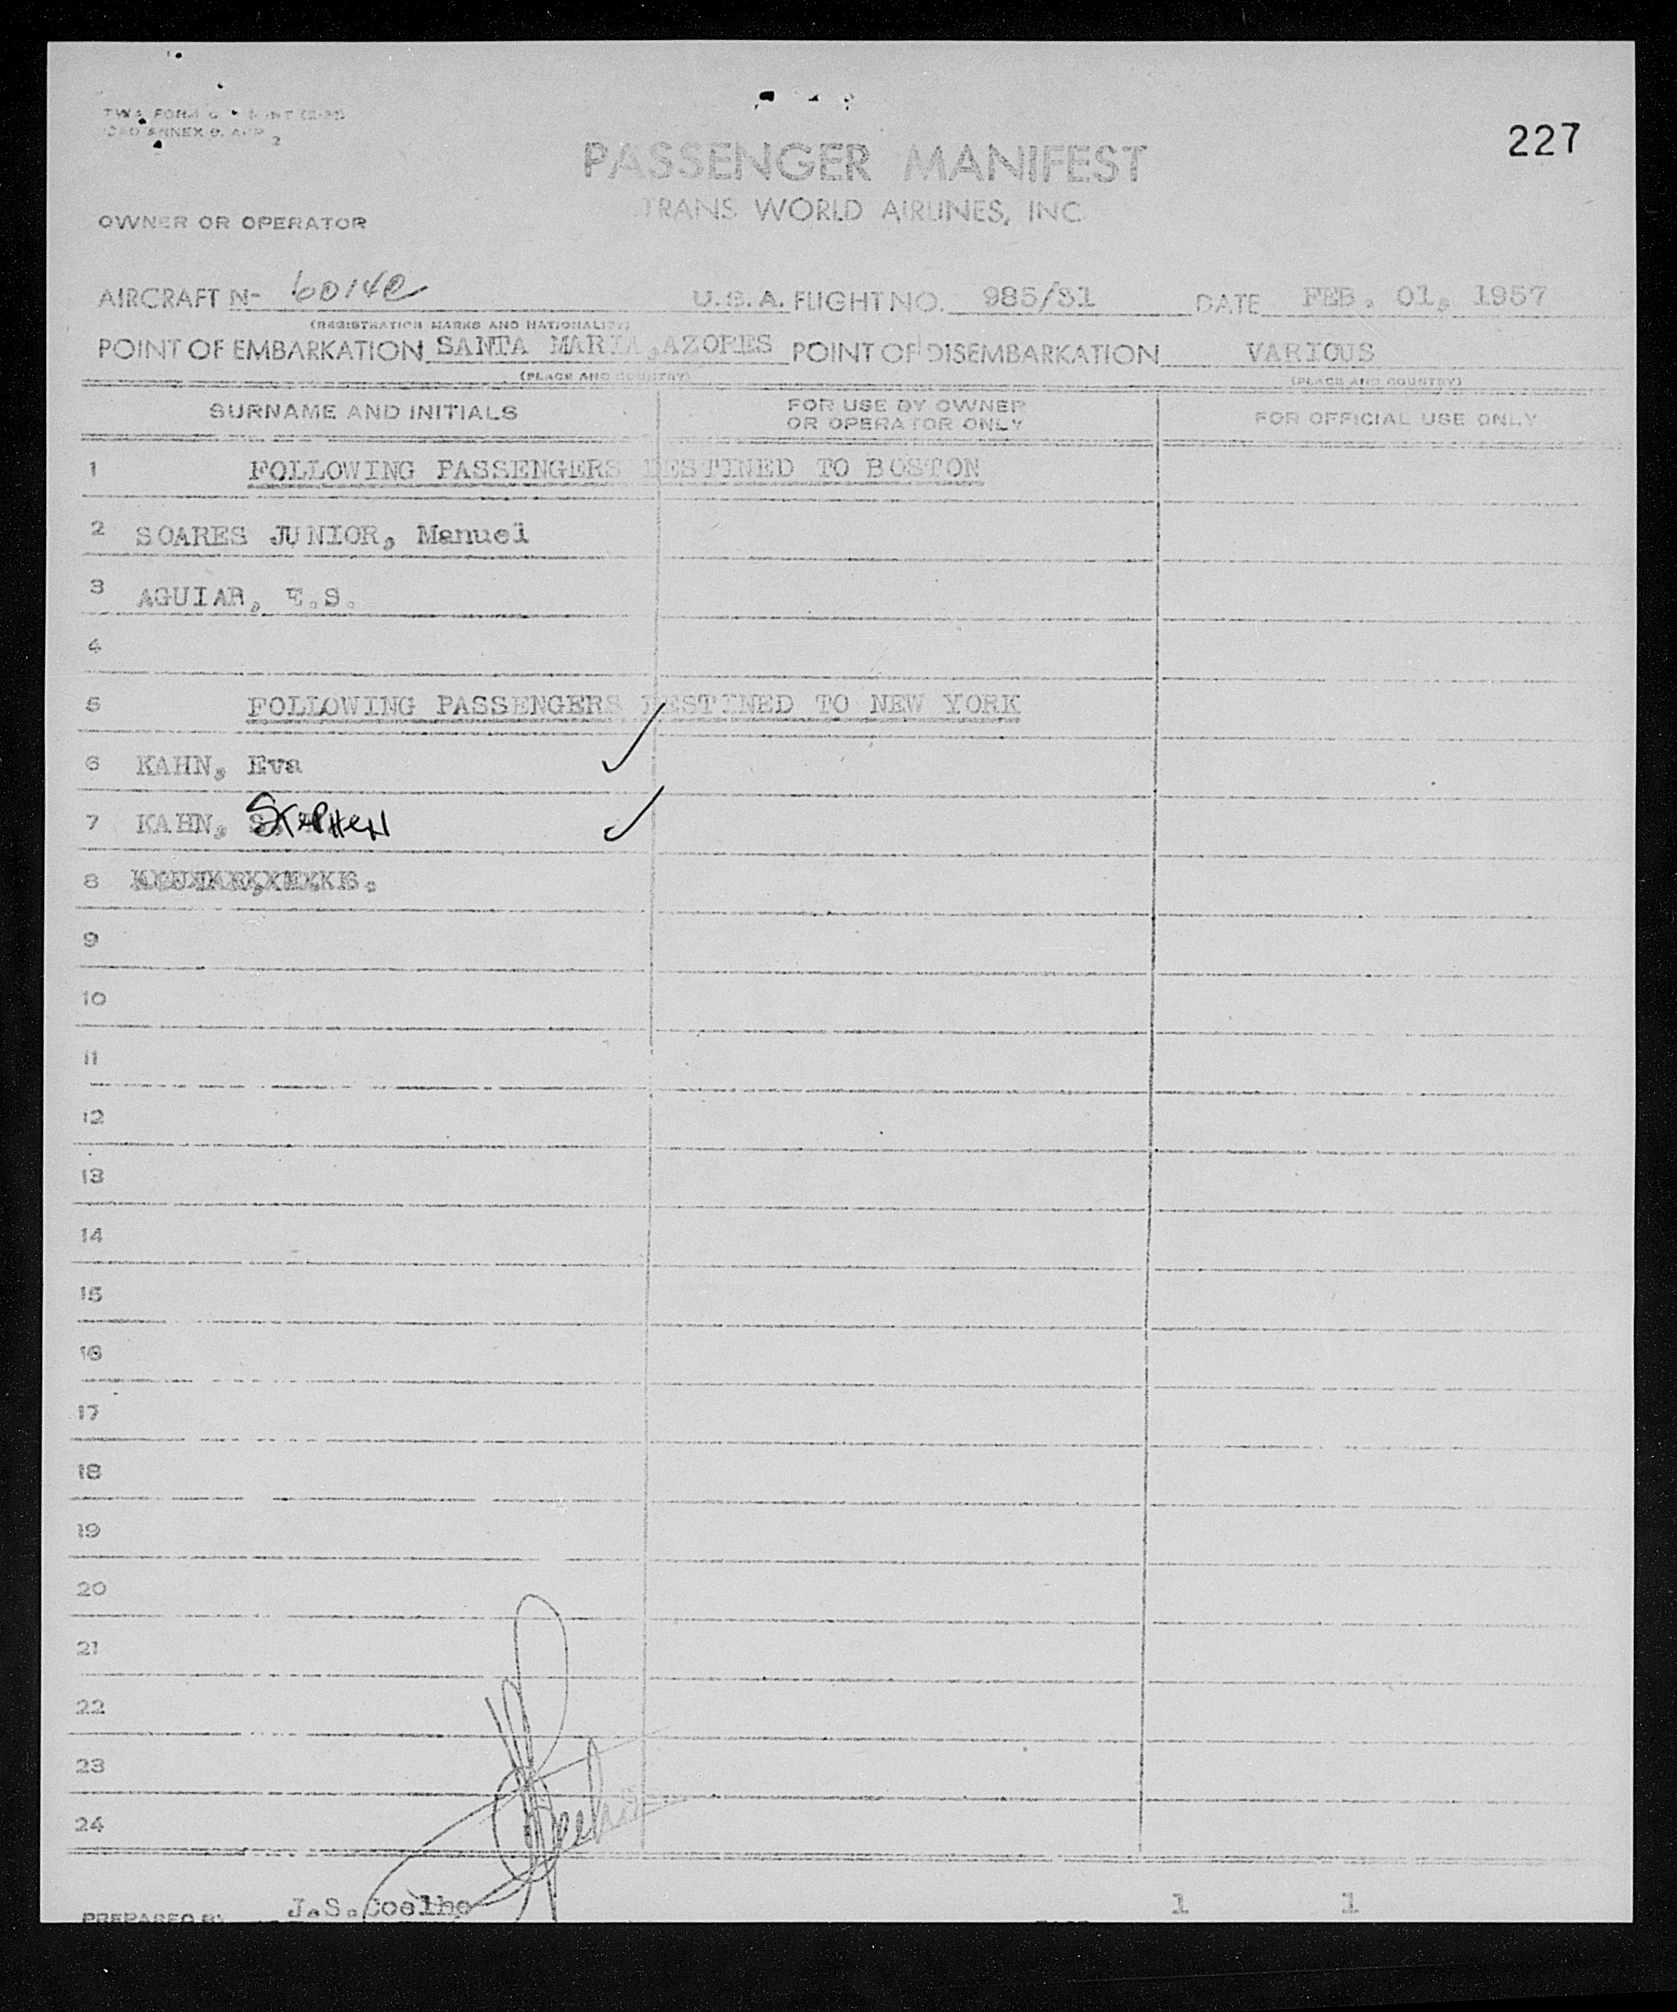 227
PASSENGER MANIFEST
TRANS WORLD AIRLINES, INC.
OWNER OR OPERATOR
AIRCRAFT N- 6014C U.S.A. FLIGHT NO. 985/31 DATE FEB. 01, 1957
(REGISTRATION MARKS AND NATIONALITY)
POINT OF EMBARKATION SANTA MARIA, AZORES POINT OF DISEMBARKATION VARIOUS
(PLACE AND COUNTRY) (PLACE AND COUNTRY)
SURNAME AND INITIALS FOR USE BY OWNER OR OPERATOR ONLY FOR OFFICIAL USE ONLY
1 FOLLOWING PASSENGERS DESTINED TO BOSTON
2 SOARES JUNIOR, Manuel
3 AGUIAR, E.S.
4
5 FOLLOWING PASSENGERS DESTINED TO NEW YORK
6 KAHN, Eva
7 KAHN, Stephen
8
9
10
11
12
13
14
15
16
17
18
19
20
21
22
23
24
PREPARED BY J.S.Coelho 1 1